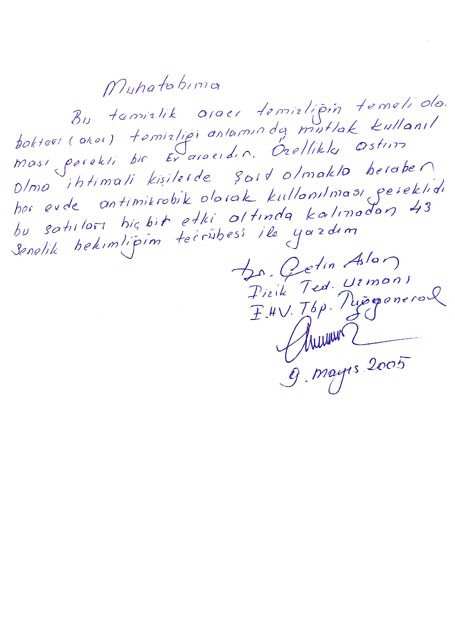 Muhatabıma
Bu temizlik aracı temizliğin temeli ola
bakteri (akar) temizliği anlamında mutlak kullanıl
ması gerekli bir Ev aracıdır. Özellikle astım
olma ihtimali kişilerde şart olmakla beraber
her evde antimikrobik olarak kullanılması gereklidi
bu satırları hiçbir etki altında kalmadan 43
senelik hekimliğim tecrübesi ile yazdım
Dr. Çetin Aslan
Fizik Ted. Uzmanı
E. Hv. Tbp. Tuğgeneral
9. mayıs 2005